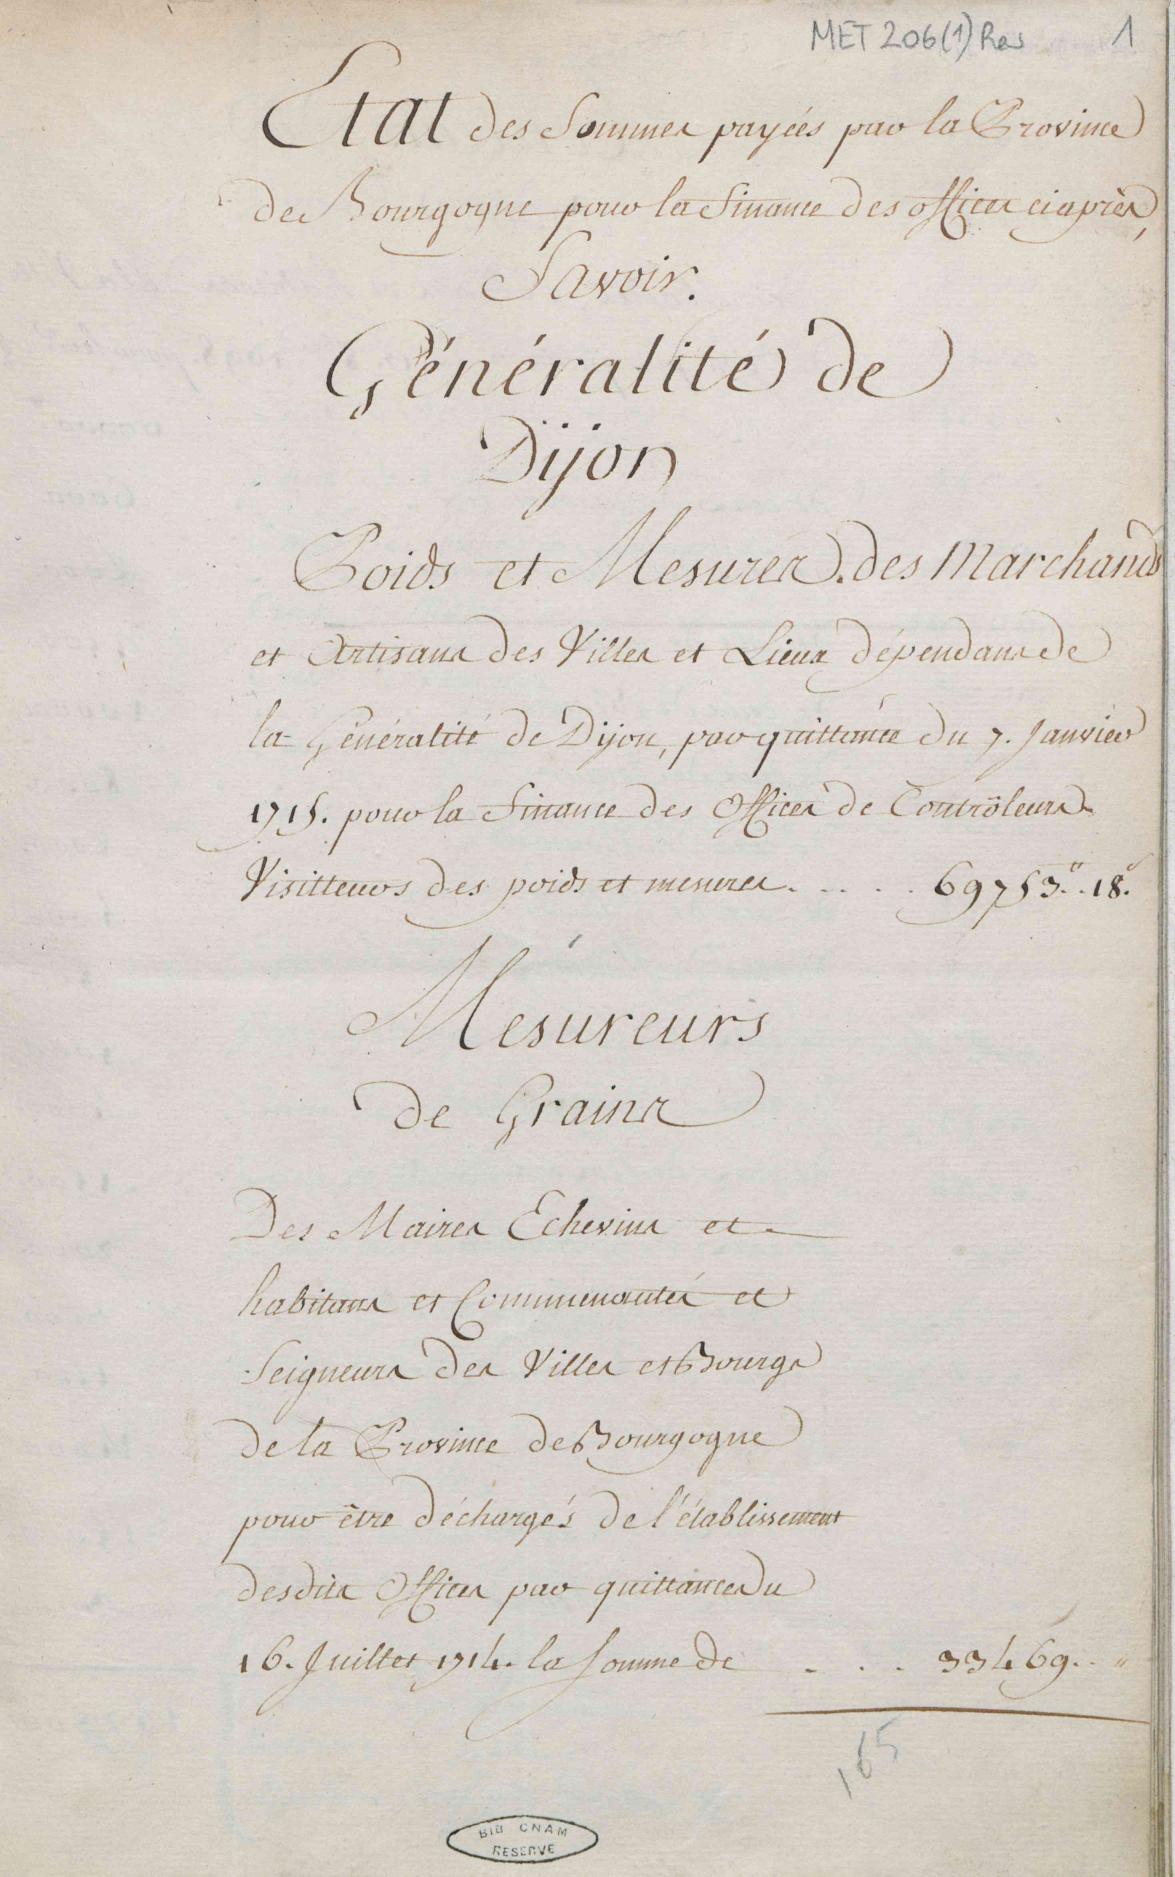 MET 206(1) Res 1
Etat des Sommes payées par la Province
de Bourgogne pour la finance des offices ciaprès,
Savoir.
Généralité de
Dijon
Poids et Mesures. des Marchands
et Artisans des Villes et Lieux dépendans de
la Généralité de Dijon, par quittance du 7. Janvier
1715. pour la finance des Offices de Contrôleurs
Visitteurs des poids et mesures. . . . . 69753.# .18.s
Mésureurs
de Grains
Des Maires Echevins et
habitans et Communautés et
Seigneurs des Villes et Bourgs
de la Province de Bourgogne
pour être déchargés de l'établissement
desdits Offices par quittance du
16. Juillet 1714. la somme de . . . 33469. . "
165
BIB CNAM
RESERVE